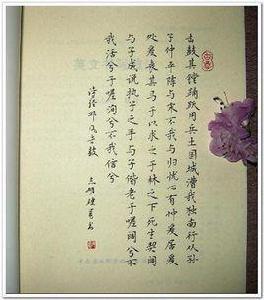 击鼓其镗踊跃用兵土国城漕我独南行从孙
子仲平陈与宋不我与归忧心有忡爰居爰
处爰丧其马于以求之于林之下死生契阔
与子成说执子之手与子偕老于嗟阔兮不
我活兮于嗟洵兮不我信兮
诗经邶风击鼓